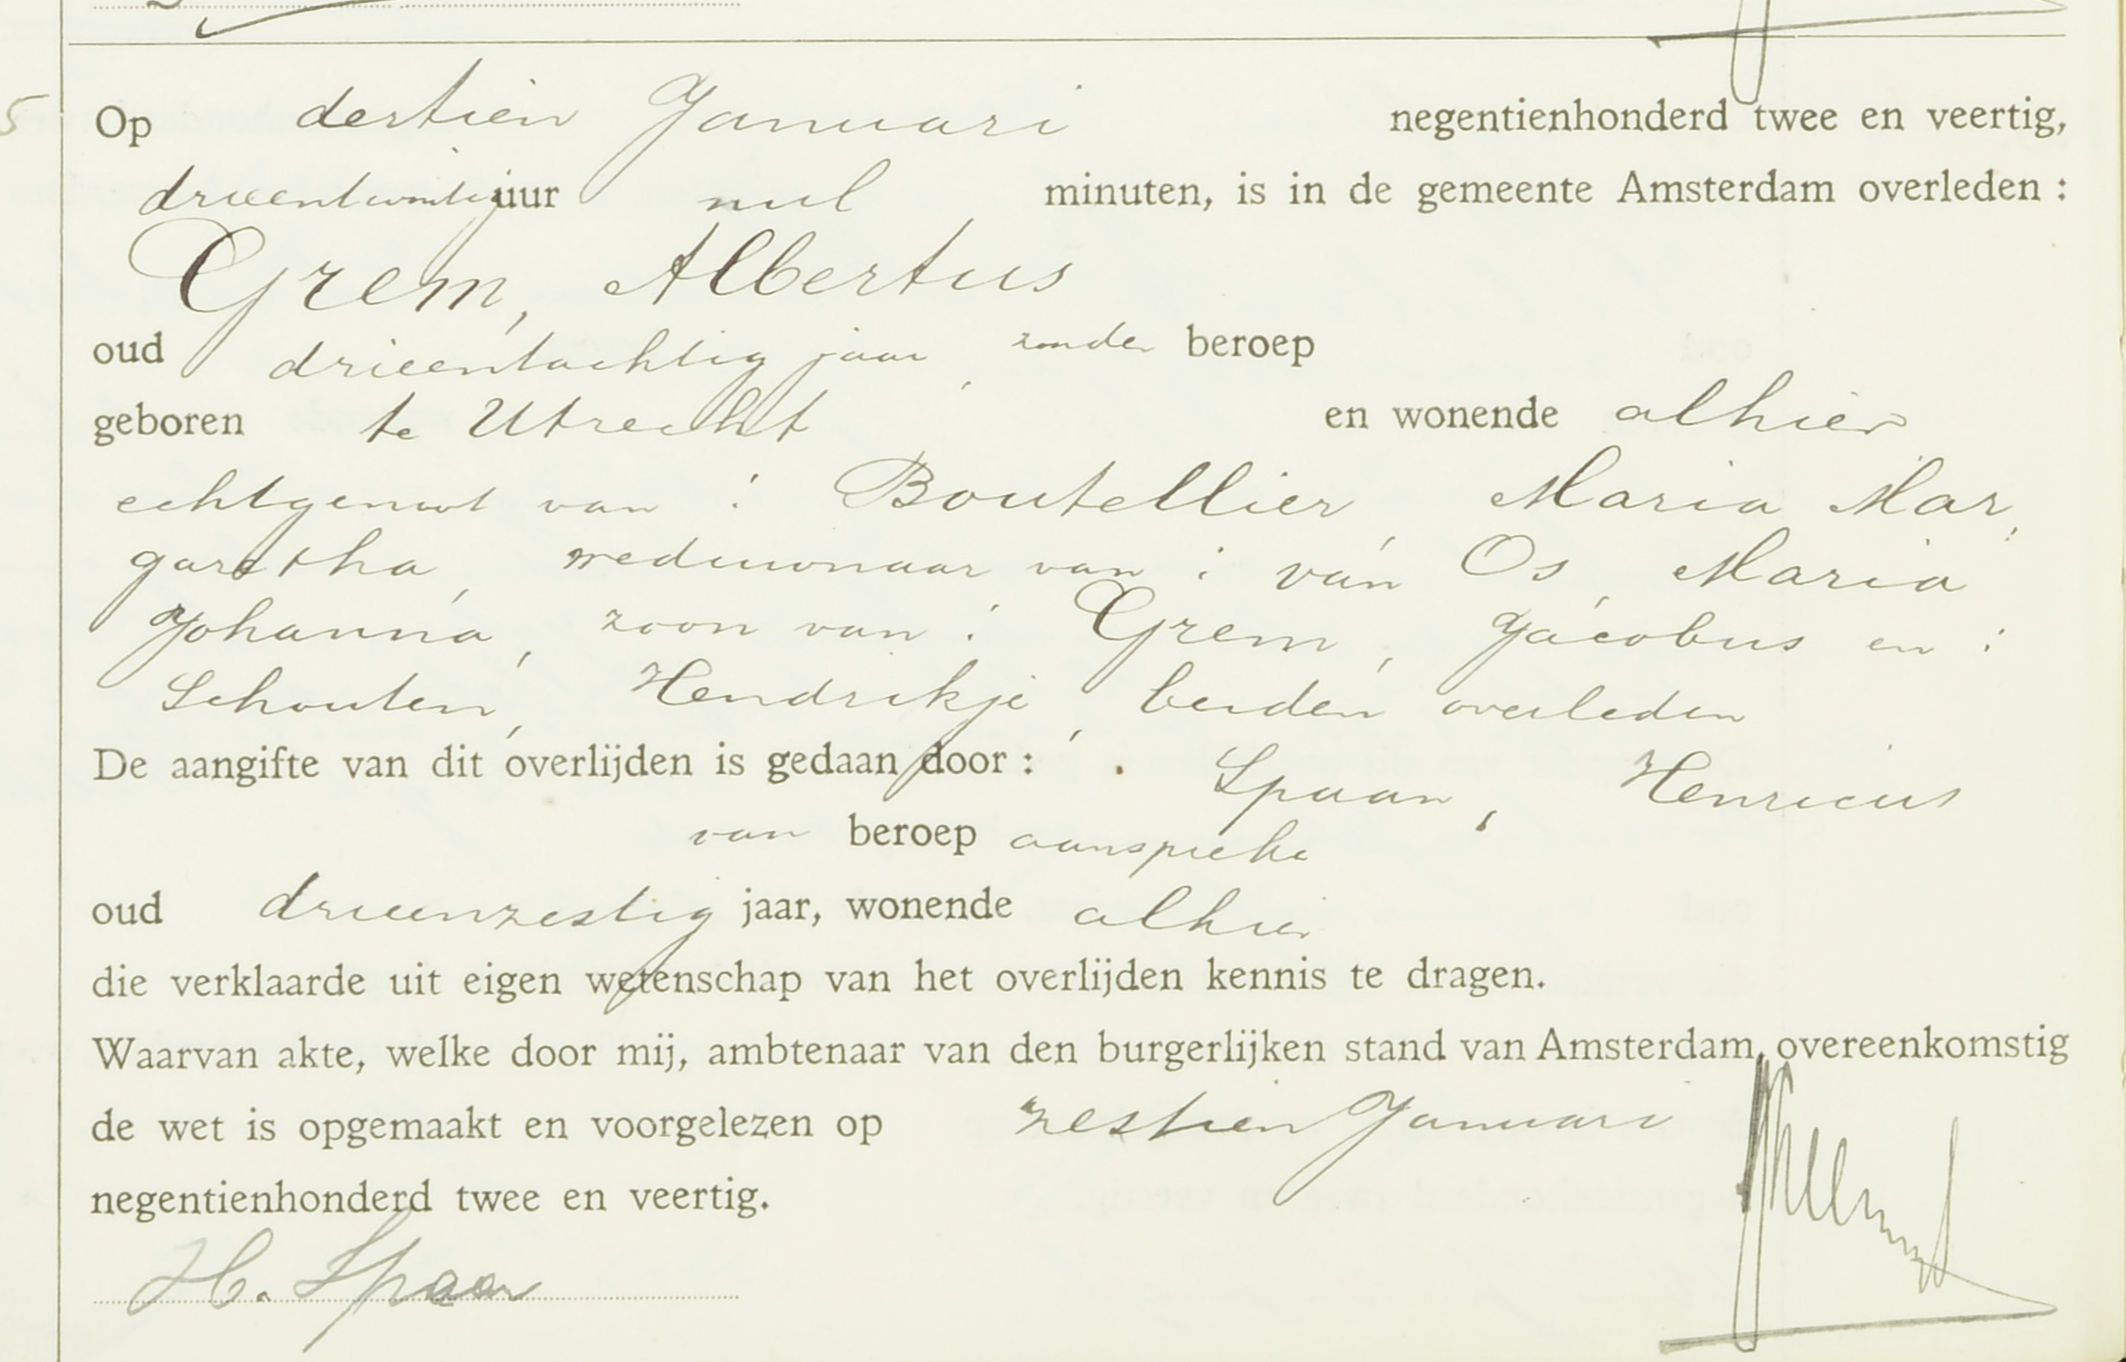 5
Op dertien Januari negentienhonderd twee en veertig,
drieentwintig uur nul minuten, is in de gemeente Amsterdam overleden :
Grem, Albertus
oud drieentachtig jaar, zonder beroep
geboren te Utrecht en wonende alhier,
echtgenoot van : Boutellier, Maria Mar,
garetha, weduwnaar van : van Os, Maria
Johanna, zoon van : Grem, Jacobus en :
Schouten, Hendrikje, beiden overleden
De aangifte van dit overlijden is gedaan door : Spaan, Henricus
van beroep aanspreker
oud drieenzestig jaar, wonende alhier
die verklaarde uit eigen wetenschap van het overlijden kennis te dragen.
Waarvan akte, welke door mij, ambtenaar van den burgerlijken stand van Amsterdam, overeenkomstig
de wet is opgemaakt en voorgelezen op zestien Januari
negentienhonderd twee en veertig.
H. Spaan